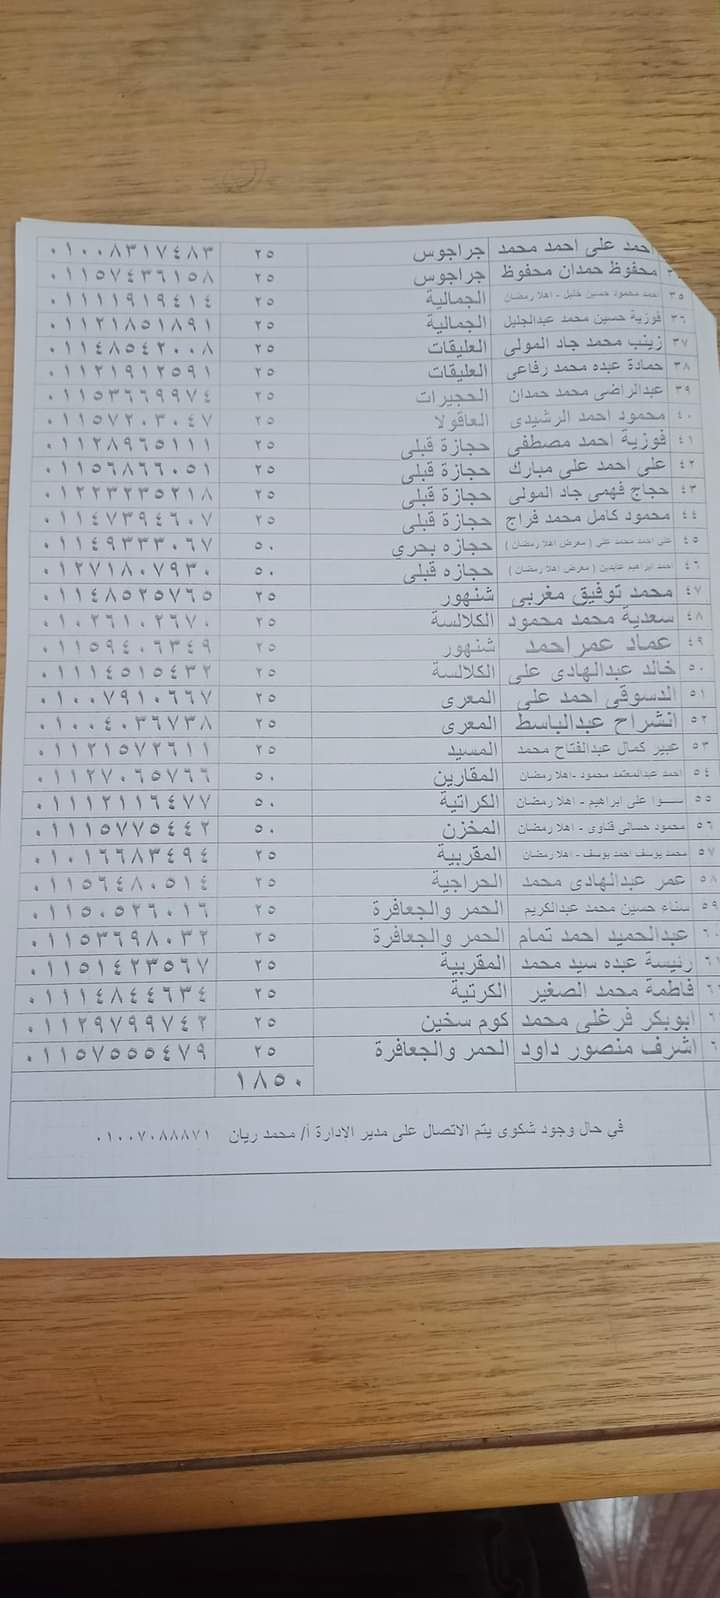 احمد على احمد محمد جراجوس ٢٥ ٠١٠٠٨٣١٧٤٨٣
محفوظ حمدان محفوظ جراجوس ٢٥ ٠١١٥٧٤٣٦١٥٨
٣٥ احمد محمود حسين خليل - اهلا رمضان الجمالية ٢٥ ٠١١١١٩١٩٤١٤
٣٦ فوزية حسين محمد عبدالجليل الجمالية ٢٥ ٠١١٢١٨٥١٨٩١
٣٧ زينب محمد جاد المولى العليقات ٢٥ ٠١١٤٨٥٤٢٠٠٨
٣٨ حمادة عبده محمد رفاعى العليقات ٢٥ ٠١١٢١٩١٢٥٩١
٣٩ عبدالراضى محمد حمدان الحجيرات ٢٥ ٠١١٥٣٦٦٩٩٧٤
٤٠ محمود احمد الرشيدى العاقولا ٢٥ ٠١١٥٧٢٠٣٠٤٧
٤١ فوزية احمد مصطفى حجازة قبلى ٢٥ ٠١١٢٨٩٦٥١١١
٤٢ على احمد على مبارك حجازة قبلى ٢٥ ٠١١٥٦٨٦٦٠٥١
٤٣ حجاج فهمى جاد المولى حجازة قبلى ٢٥ ٠١٢٢٣٢٣٥٢١٨
٤٤ محمود كامل محمد فراج حجازة قبلى ٢٥ ٠١١٤٧٣٩٤٦٠٧
٤٥ على احمد محمد على ( معرض اهلا رمضان ) حجازه بحري ٥٠ ٠١١٤٩٣٣٣٠٦٧
٤٦ احمد ابراهيم عابدين ( معرض اهلا رمضان ) حجازه قبلى ٥٠ ٠١٢٧١٨٠٧٩٣٠
٤٧ محمد توفيق مغربى شنهور ٢٥ ٠١١٤٨٥٢٥٧٦٥
٤٨ سعدية محمد محمود الكلالسة ٢٥ ٠١٠٢٦١٠٢٦٧٠
٤٩ عماد عمر احمد شنهور ٢٥ ٠١١٥٩٤٠٦٣٤٩
٥٠ خالد عبدالهادى على الكلالسة ٢٥ ٠١١١٤٥١٥٤٣٢
٥١ الدسوقى احمد على المعرى ٢٥ ٠١٠٠٧٩١٠٦٦٧
٥٢ انشراح عبدالباسط المعرى ٢٥ ٠١٠٠٤٠٣٦٧٣٨
٥٣ عبير كمال عبدالفتاح محمد المسيد ٢٥ ٠١١٢١٥٧٢٦١١
٥٤ احمد عبدالمعتمد محمود -اهلا رمضان المقارين ٥٠ ٠١١٢٧٠٦٥٧٦٦
٥٥ على ابراهيم - اهلا رمضان الكراتية ٥٠ ٠١١١٢١١٦٤٧٧
٥٦ محمود حسانى قناوى - اهلا رمضان المخزن ٥٠ ٠١١١٥٧٧٥٤٤٢
٥٧ محمد يوسف احمد يوسف - اهلا رمضان المقربية ٢٥ ٠١٠١٦٦٨٣٤٩٤
٥٨ عمر عبدالهادى محمد الحراجية ٢٥ ٠١١٥٦٤٨٠٥١٤
٥٩ سناء حسين محمد عبدالكريم الحمر والجعافرة ٢٥ ٠١١٥٠٥٢٦٠١٦
٦٠ عبدالحميد احمد تمام الحمر والجعافرة ٢٥ ٠١١٥٣٦٩٨٠٣٢
رئيسة عبده سيد محمد المقربية ٢٥ ٠١١٥١٤٢٣٥٦٧
فاطمة محمد الصغير الكرتية ٢٥ ٠١١١٤٨٤٤٦٣٤
ابوبكر فرغلى محمد كوم سخين ٢٥ ٠١١٢٩٧٩٩٧٤٢
اشرف منصور داود الحمر والجعافرة ٢٥ ٠١١٥٧٥٥٥٤٧٩
١٨٥٠
في حال وجود شكوى يتم الاتصال على مدير الإدارة أ/ محمد ريان ٠١٠٠٧٠٨٨٨٧١